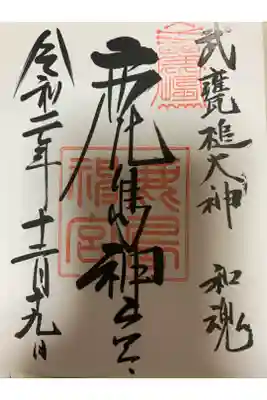 武甕槌大神 和魂
鹿島神宮
令和二年 十二月十九日
鹿島
神宮